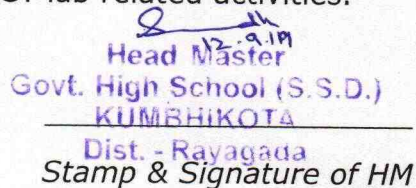 lab related activities.
12.9.19
Head Master
Govt. High School (S.S.D.)
KUMBHIKOTA
Dist. - Rayagada
Stamp & Signature of HM